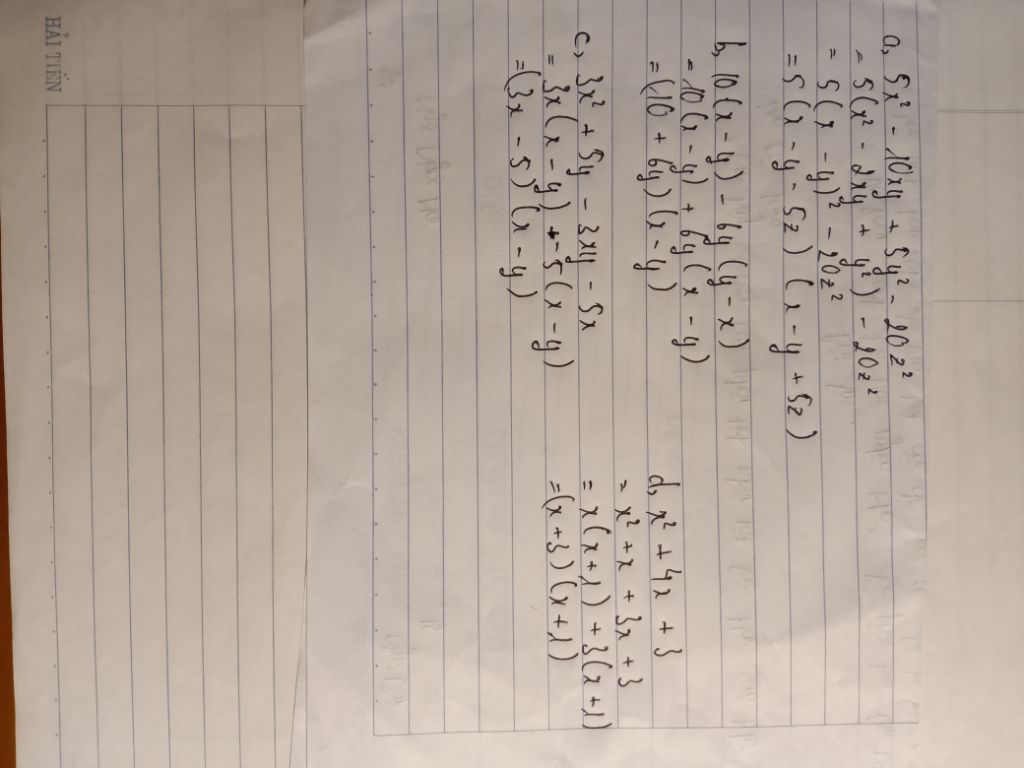 a, 5x² - 10xy + 5y² - 20z²
= 5(x² - 2xy + y²) - 20z²
= 5(x - y)² - 20z²
= 5(x - y - 5z)(x - y + 5z)
b, 10(x - y) - 6y(y - x)
= 10(x - y) + 6y(x - y)
= (10 + 6y)(x - y)
c, 3x² + 5y - 3xy - 5x
= 3x(x - y) + -5(x - y)
= (3x - 5)(x - y)
d, x² + 4x + 3
= x² + x + 3x + 3
= x(x+1) + 3(x+1)
= (x+3)(x+1)
HẢI TIẾN